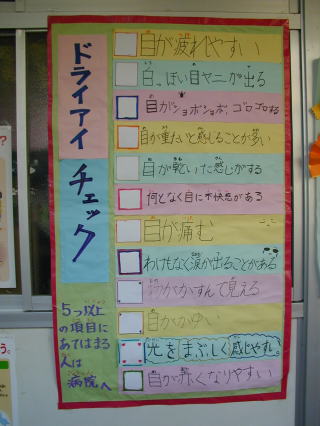 ドライアイ
チェック
目が疲れやすい
白っぽい目ヤニが出る
目がショボショボ、ゴロゴロする
目が重たいと感じることが多い
目が乾いた感じがする
何となく目に不快感がある
目が痛む
わけもなく涙が出ることがある
物がかすんで見える
目がかゆい
光をまぶしく感じやすい。
目が赤くなりやすい
5つ以上
の項目に
あてはまる
人は
病院へ